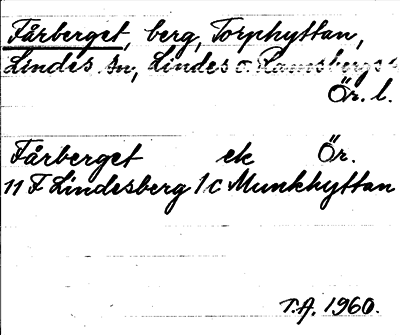 Fårberget, berg, Torphyttan,
Lindes sn, Lindes o. Ramsbergs
Ör. l.
Fårberget ek Ör.
11 F Lindesberg 1c Munkhyttan
T.A. 1960.